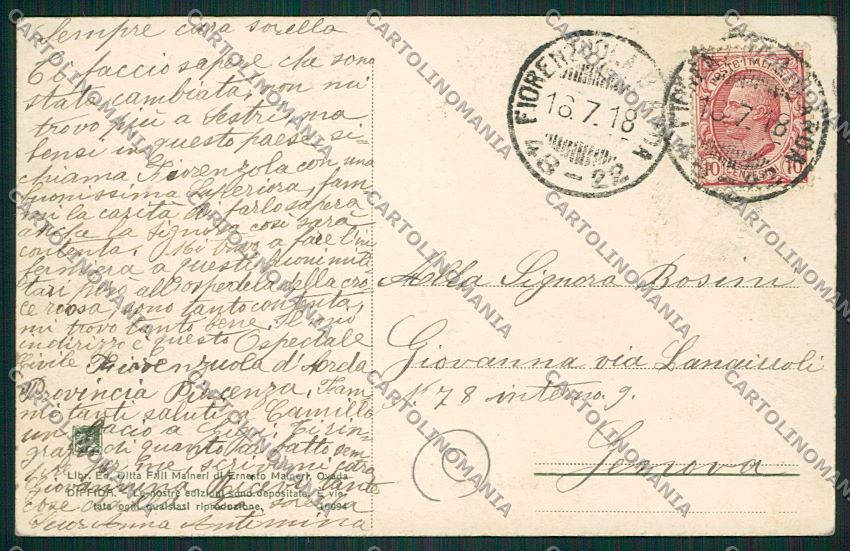 Sempre cara sorella
Ti faccio sapere che sono
stata cambiata, non mi
trovo più a Sestri, ma
bensi in questo paese si-
chiama Fiorenzola con una
buonissima Superiora, fam-
mi la carità di farlo sapere
anche la signora così sarà
contenta. Mi trovo a fare l'in
fermiera a questi buoni mili
tari però all'ospedale della cro
ce rossa, sono tanto contenta,
mi trovo tanto bene. Il mio
indirizzo è questo Ospedale
Civile Fiorenzuola d'Arda
Provincia Piacenza. Fam
mi tanti saluti a Camillo
un bacio a Ti rin
grazio di quanto hai fatto sem
pre per me, scrivimi cara
Giovannina tante
cose cara sorella
Suor Anna Antonina
Libr. Ed. Ditta F.lli Maineri di Ernesto Maineri, Ovada
DIFFIDA. - Le nostre edizioni sono depositate. È vie-
tata ogni qualsiasi riproduzione. 16094
FIORENZUOLA D'ARDA
16.7.18
48-22
POSTE ITALIANE
10 CENTESIMI 10
FIORENZUOLA D'ARDA
16.7.18
Alla Signora Bosini
Giovanna via
N° 78 interno 9.
Genova
CARTOLINOMANIA